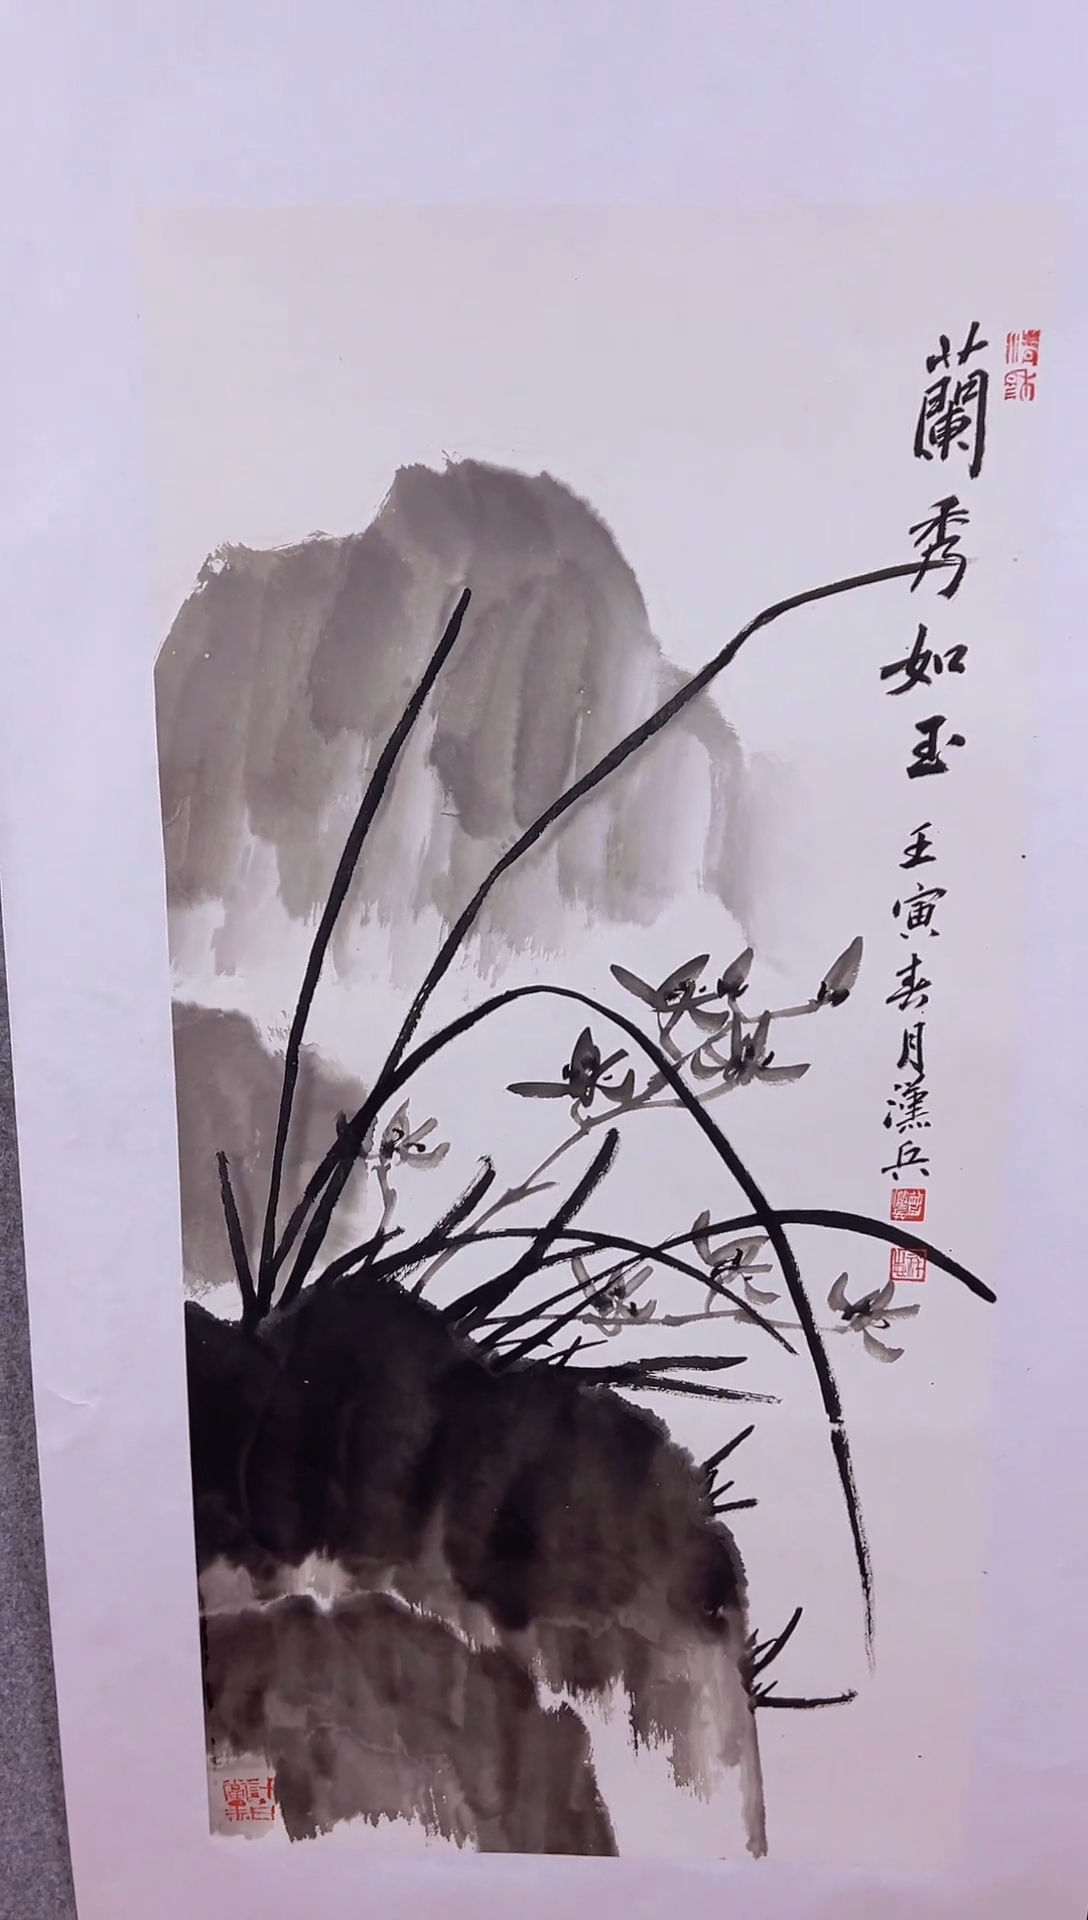 蘭秀如玉
壬寅春月漢兵